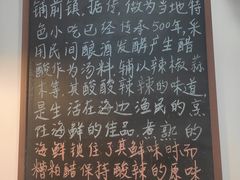 铺前镇,据传,做为当地特
色小吃已经传承500年,采
用民间酿酒发酵产生醋
酸作为汤料,辅以辣椒蒜
末等,其酸酸辣辣的味道,
是生活在海边渔民的烹
任海鲜的佳品,煮熟的
海鲜锁住了其鲜味时而
糟粕醋保持酸辣的原味